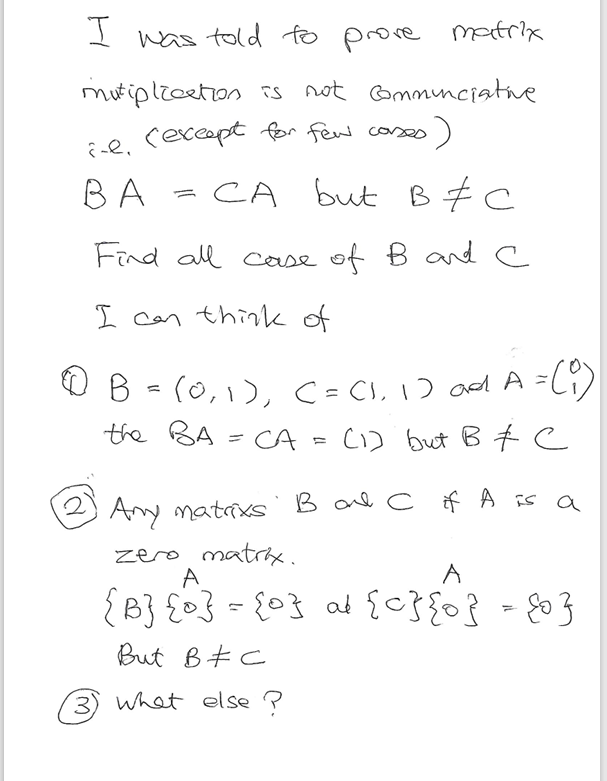 I was told to prove matrix
mutiplication is not Communciative
i.e. (except for few cases)
BA = CA but B ≠ C
Find all case of B and C
I can think of
① B = (0,1), C = (1,1) ad A = (0 1)
the BA = CA = (1) but B ≠ C
② Any matrixs B and C if A is a
zero matrix.
A A
{B}{0} = {0} ad {C}{0} = {0}
But B ≠ C
③ What else ?